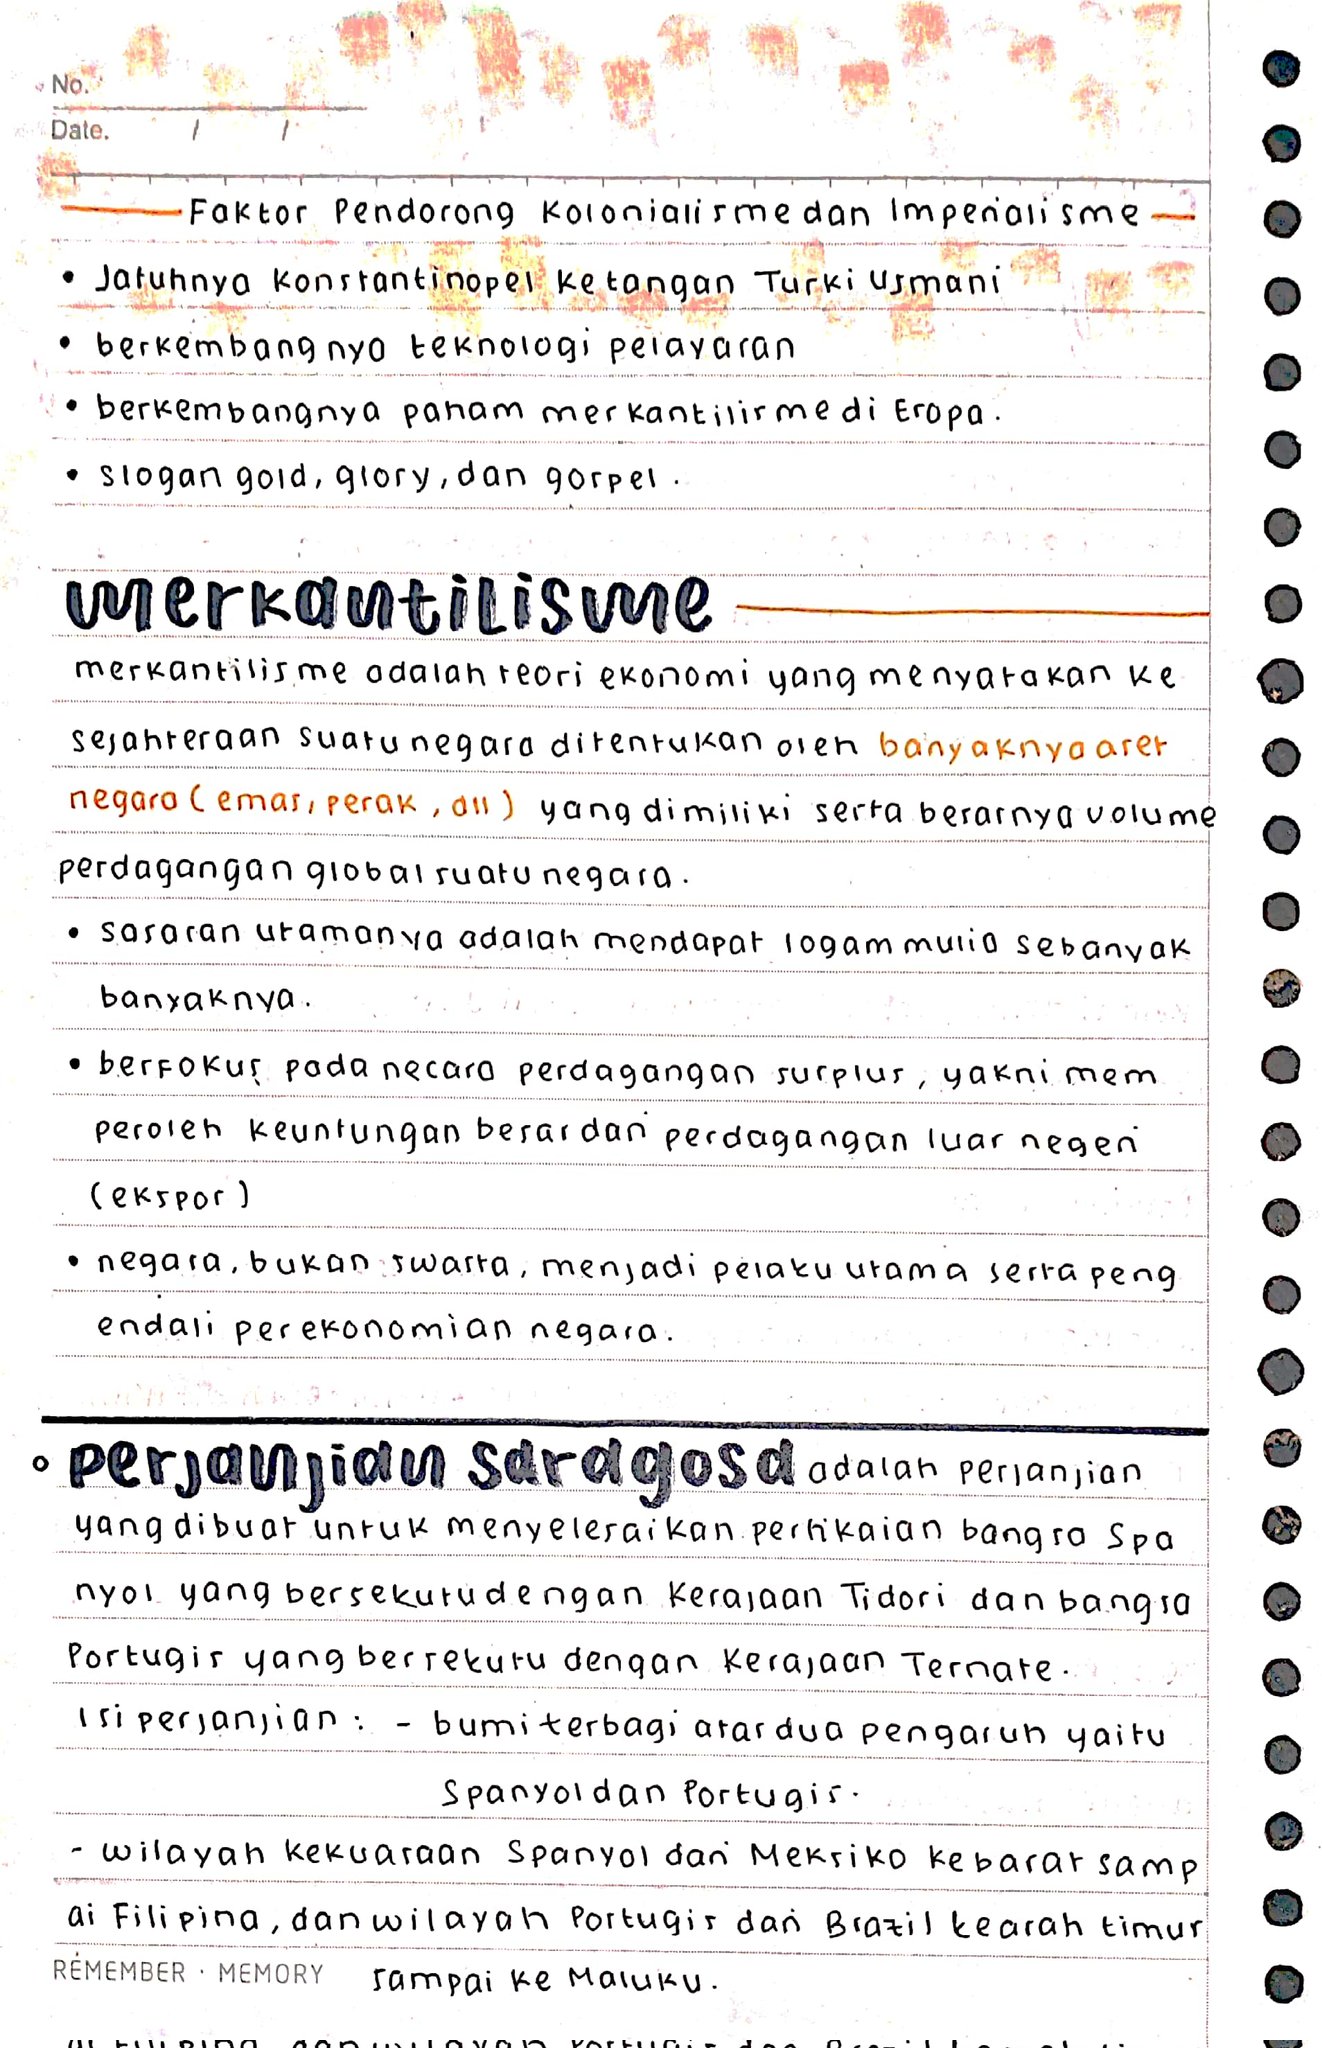 No.
Date. / /
Faktor Pendorong Kolonialisme dan Imperialisme
• Jatuhnya Konstantinopel ke tangan Turki Usmani
• berkembangnya teknologi pelayaran
• berkembangnya paham merkantilisme di Eropa.
• slogan gold, glory, dan gospel.
merkantilisme
merkantilisme adalah teori ekonomi yang menyatakan ke
sejahteraan suatu negara ditentukan oleh banyaknya aset
negara (emas, perak, dll) yang dimiliki serta besarnya volume
perdagangan global suatu negara.
• sasaran utamanya adalah mendapat logam mulia sebanyak
banyaknya.
• berfokus pada necara perdagangan surplus, yakni mem
peroleh keuntungan besar dari perdagangan luar negeri
(ekspor)
• negara, bukan swasta, menjadi pelaku utama serta peng
endali perekonomian negara.
perjanjian saragosa adalah perjanjian
yang dibuat untuk menyelesaikan pertikaian bangsa Spa
nyol yang bersekutu dengan Kerajaan Tidori dan bangsa
Portugis yang bersekutu dengan Kerajaan Ternate.
Isi perjanjian : - bumi terbagi atas dua pengaruh yaitu
Spanyol dan Portugis.
- wilayah kekuasaan Spanyol dari Meksiko kebarat samp
ai Filipina, dan wilayah Portugis dari Brazil kearah timur
REMEMBER · MEMORY sampai ke Maluku.